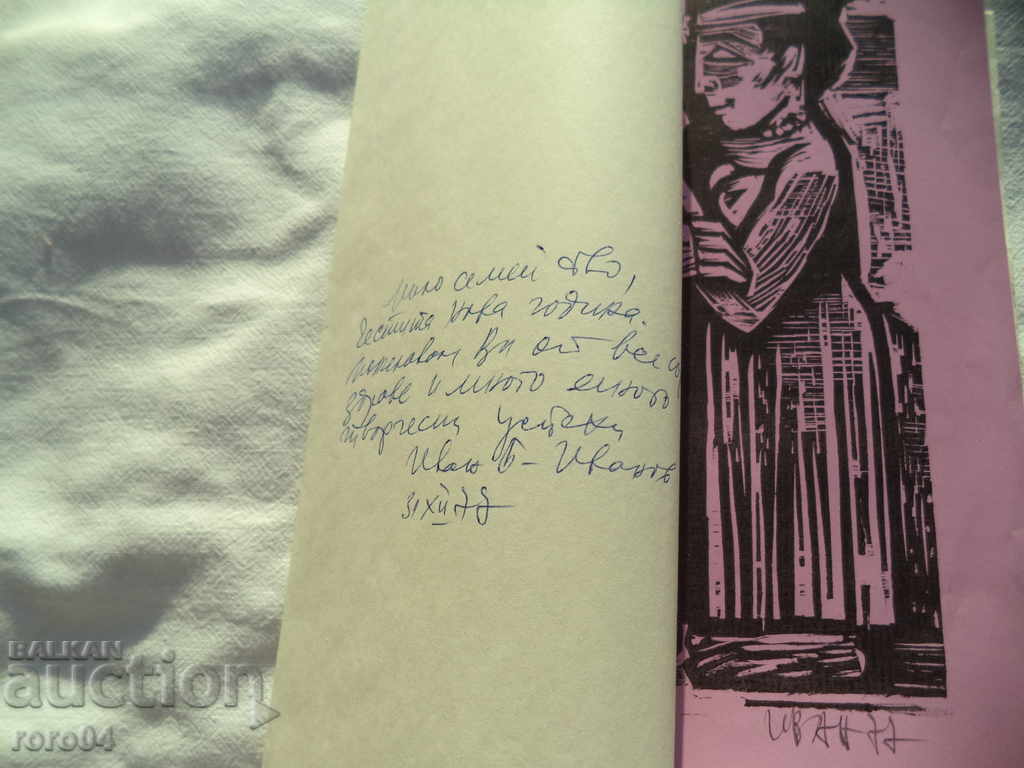 Мило семейство,
Честита Нова година.
Пожелавам Ви от все
здраве и много много
творчески успехи
Иван Б - Иванов
31 XII 77
ИВАН 77
BALKAN
auction
roro04